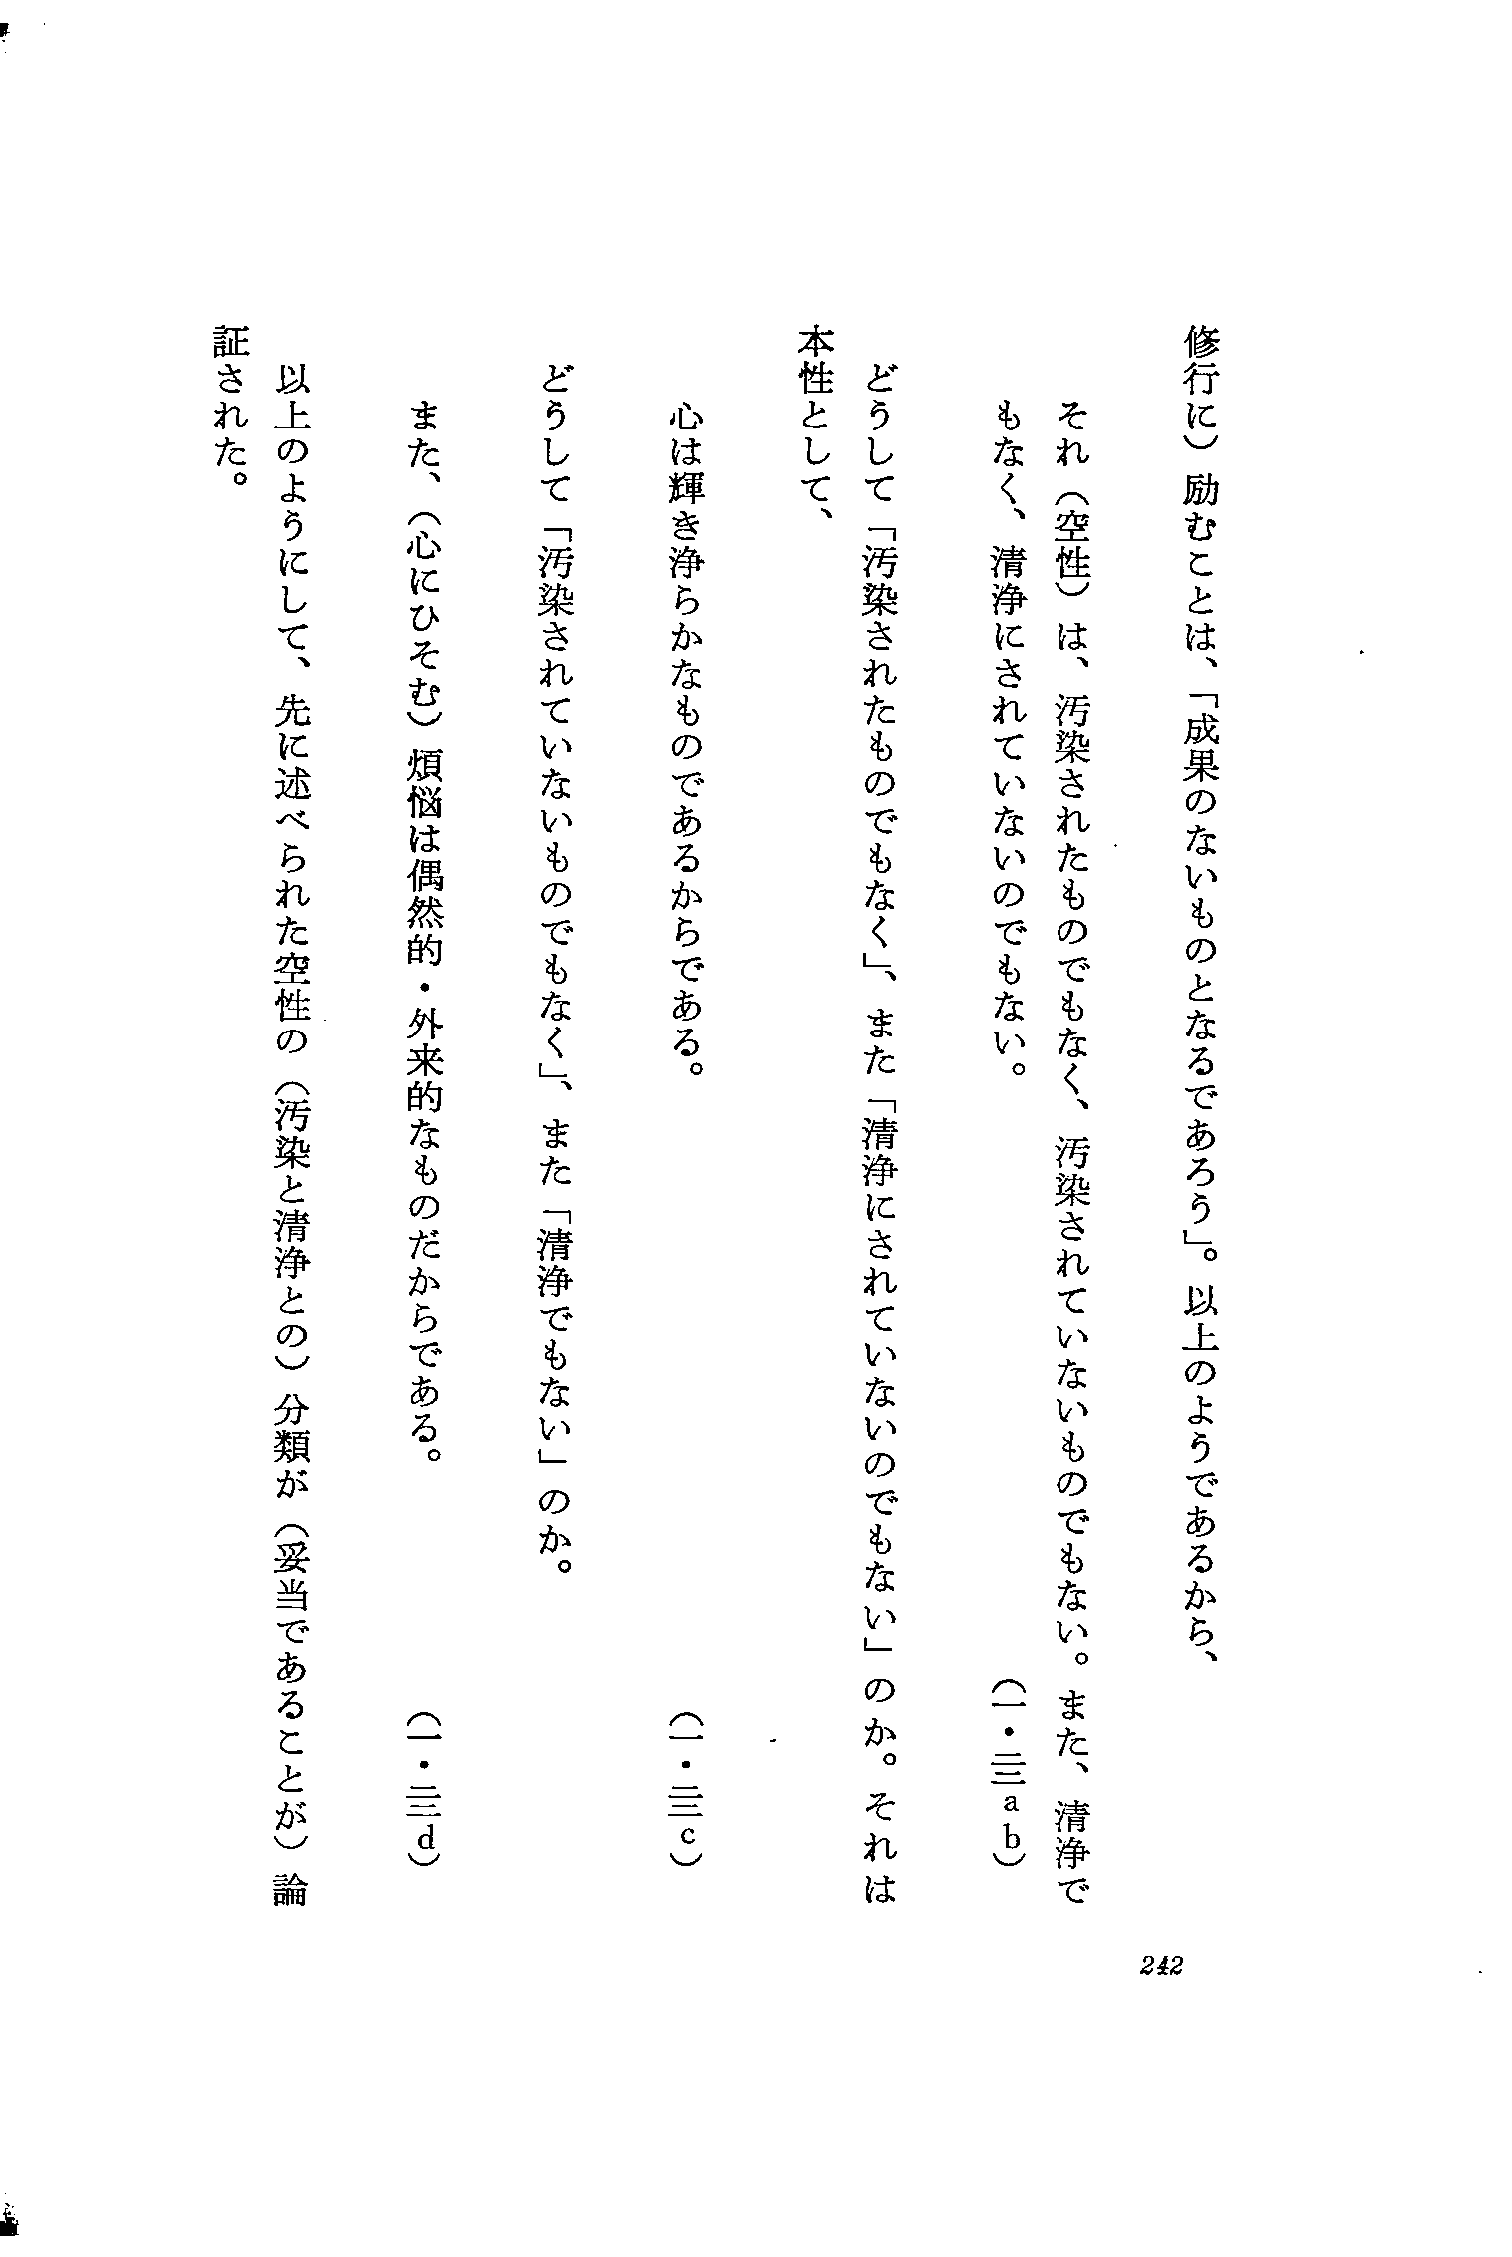 修行に）励むことは、「成果のないものとなるであろう」。以上のようであるから、
それ（空性）は、汚染されたものでもなく、汚染されていないものでもない。また、清浄で
もなく、清浄にされていないのでもない。（一・二三ab）
どうして「汚染されたものでもなく」、また「清浄にされていないのでもない」のか。それは
本性として、
心は輝き浄らかなものであるからである。（一・二三c）
どうして「汚染されていないものでもなく」、また「清浄でもない」のか。
また、（心にひそむ）煩悩は偶然的・外来的なものだからである。（一・二三d）
以上のようにして、先に述べられた空性の（汚染と清浄との）分類が（妥当であることが）論
証された。
242